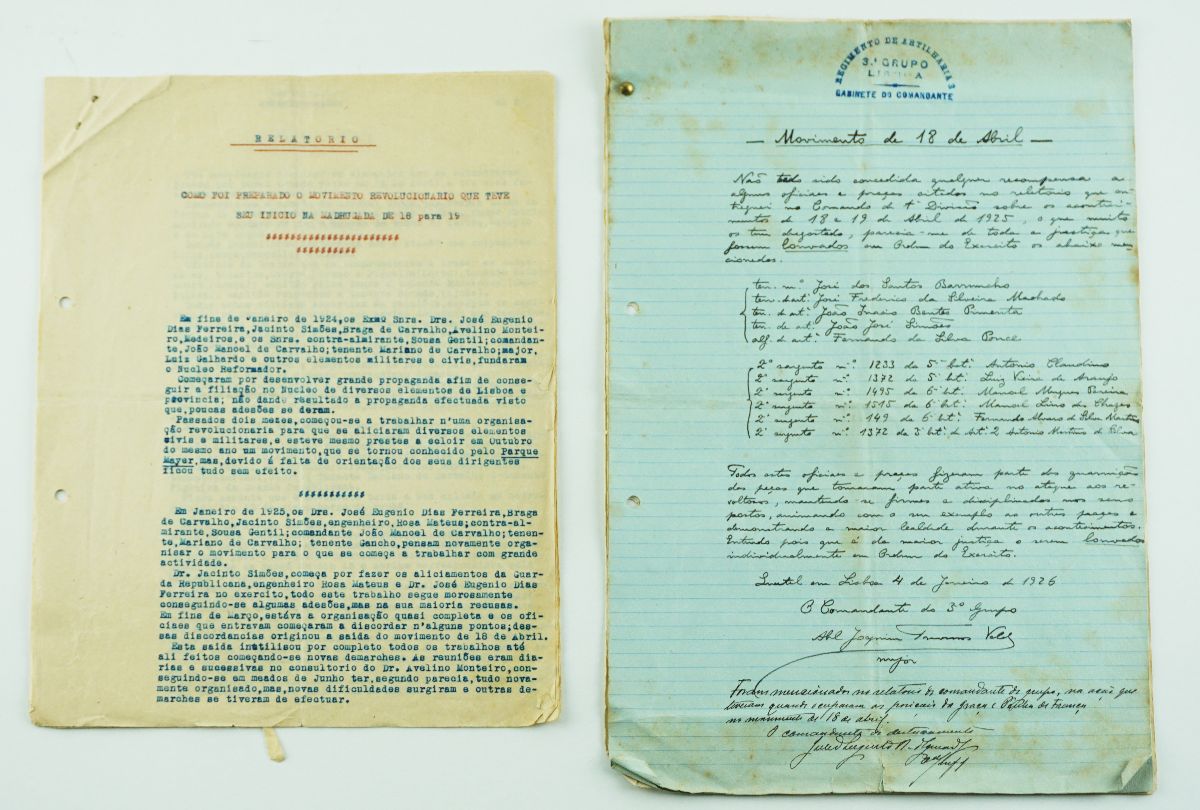 RELATORIO
COMO FOI PREPARADO O MOVIMENTO REVOLUCIONARIO QUE TEVE
SEU INICIO NA MADRUGADA DE 18 para 19
Em fins de Janeiro de 1924,os Exmº Snrs. Drs. José Eugenio
Dias Ferreira,Jacinto Simões,Braga de Carvalho,Avelino Montei-
ro,Medeiros,e os Snrs. contra-almirante,Sousa Gentil;comandan-
te,João Manoel de Carvalho;tenente Mariano de Carvalho;major,
Luiz Galhardo e outros elementos militares e civis,fundaram
o Nucleo Reformador.
Começaram por desenvolver grande propaganda afim de conse-
guir a filiação no Nucleo de diversos elementos de Lisboa e
provincia; não dando resultado a propaganda efectuada visto
que,poucas adesões se deram.
Passados dois mezes,começou-se a trabalhar n'uma organisa-
ção revolucionaria para que se aliciaram diversos elementos
civis e militares,e esteve mesmo prestes a ecloir em Outubro
do mesmo ano um movimento,que se tornou conhecido pelo Parque
Mayer,mas,devido á falta de orientação dos seus dirigentes
ficou tudo sem efeito.
Em Janeiro de 1925,os Drs. José Eugenio Dias Ferreira,Braga
de Carvalho,Jacinto Simões,engenheiro,Rosa Mateus;contra-al-
mirante,Sousa Gentil;comandante João Manoel de Carvalho;tenen-
te,Mariano de Carvalho; tenente Gancho,pensam novamente orga-
nisar o movimento para o que se começa a trabalhar com grande
actividade.
Dr. Jacinto Simões,começa por fazer os aliciamentos da Guar-
da Republicana,engenheiro Rosa Mateus e Dr. José Eugenio Dias
Ferreira no exercito,todo este trabalho segue morosamente
conseguindo-se algumas adesões,mas na sua maioria recusas.
Em fins de Março,estáva a organisação quasi completa e os ofi-
ciaes que entravam começaram a discordar n'alguns pontos;des-
sas discordancias originou a saida do movimento de 18 de Abril.
Esta saida inutilisou por completo todos os trabalhos até
ali feitos começando-se novas demarches. As reuniões eram dia-
rias e sucessivas no consultorio do Dr. Avelino Monteiro,con-
seguindo-se em meados de Junho ter,segundo parecia,tudo nova-
mente organisado,mas,novas dificuldades surgiram e outras de-
marches se tiveram de efectuar.
REGIMENTO DE ARTILHARIA 3
3.º GRUPO
LISBOA
GABINETE DO COMANDANTE
— Movimento de 18 de Abril —
Não tendo sido concedida qualquer recompensa a
alguns oficiaes e praças citados no relatorio que en-
treguei no Comando da 1ª Divisão sobre os aconteci-
mentos de 18 e 19 de Abril de 1925, o que muito
os tem desgostado, parecia-me de toda a justiça que
fossem louvados em Ordem do Exercito os abaixo men-
cionados.
ten. mº José dos Santos Barrumcho
ten. d'artª José Frederico da Silveira Machado
ten. d'artª João Inacio Bentes Pimenta
ten. de artª João José Simões
alf. d'artª Fernando da Silva Ponce
2º sargento nº 1233 da 5ª batª Antonio Claudino
2º sargento nº 1372 da 5ª batª Luiz Vieira de Araujo
2º sargento nº 1495 da 6ª batª Manoel Marques Pereira
2º sargento nº 1515 da 6ª batª Manoel Lino das Chagas
2º sargento nº 149 da 6ª batª Fernando Alvaro da Silva Martins
2º sargento nº 1372 da 3ª batª de Artª 2 Antonio Martins da Silva
Todos estes oficiaes e praças fizeram parte das guarnições
das peças que tomaram parte ativa no ataque aos re-
voltosos, mantendo-se firmes e disciplinados nos seus
postos, animando com o seu exemplo as outras praças e
demonstrando a maior lealdade durante os acontecimentos.
Entendo pois que é da maior justiça o serem louvados
individualmente em Ordem do Exercito.
Quartel em Lisboa 4 de Janeiro de 1926
O Comandante do 3º Grupo
Joaquim
major
Foram mencionados no relatorio do comandante do grupo, na ação que
tiveram quando ocuparam as posições da Graça e Penha de França
no movimento de 18 de abril.
O comandante do destacamento